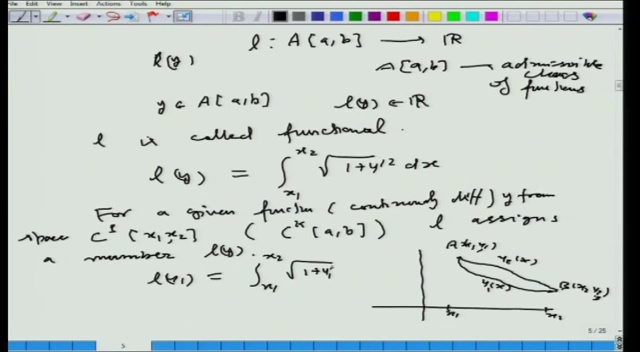 File Edit View Insert Actions Tools Help
l : A[a,b] ⟶ ℝ
l(y)
A[a,b] — admissible class of functions
y ∈ A[a,b]    l(y) ∈ ℝ
l is called functional.
l(y) = ∫_{x1}^{x2} √(1+y'^2) dx
For a given function (continuously diff) y from
space C^1[x1,x2] (C^k[a,b]) l assigns
a number l(y).
l(y1) = ∫_{x1}^{x2} √(1+y1'
A(x1,y1)
y2(x)
y1(x)
B(x2,y2)
x1
x2
5 / 25